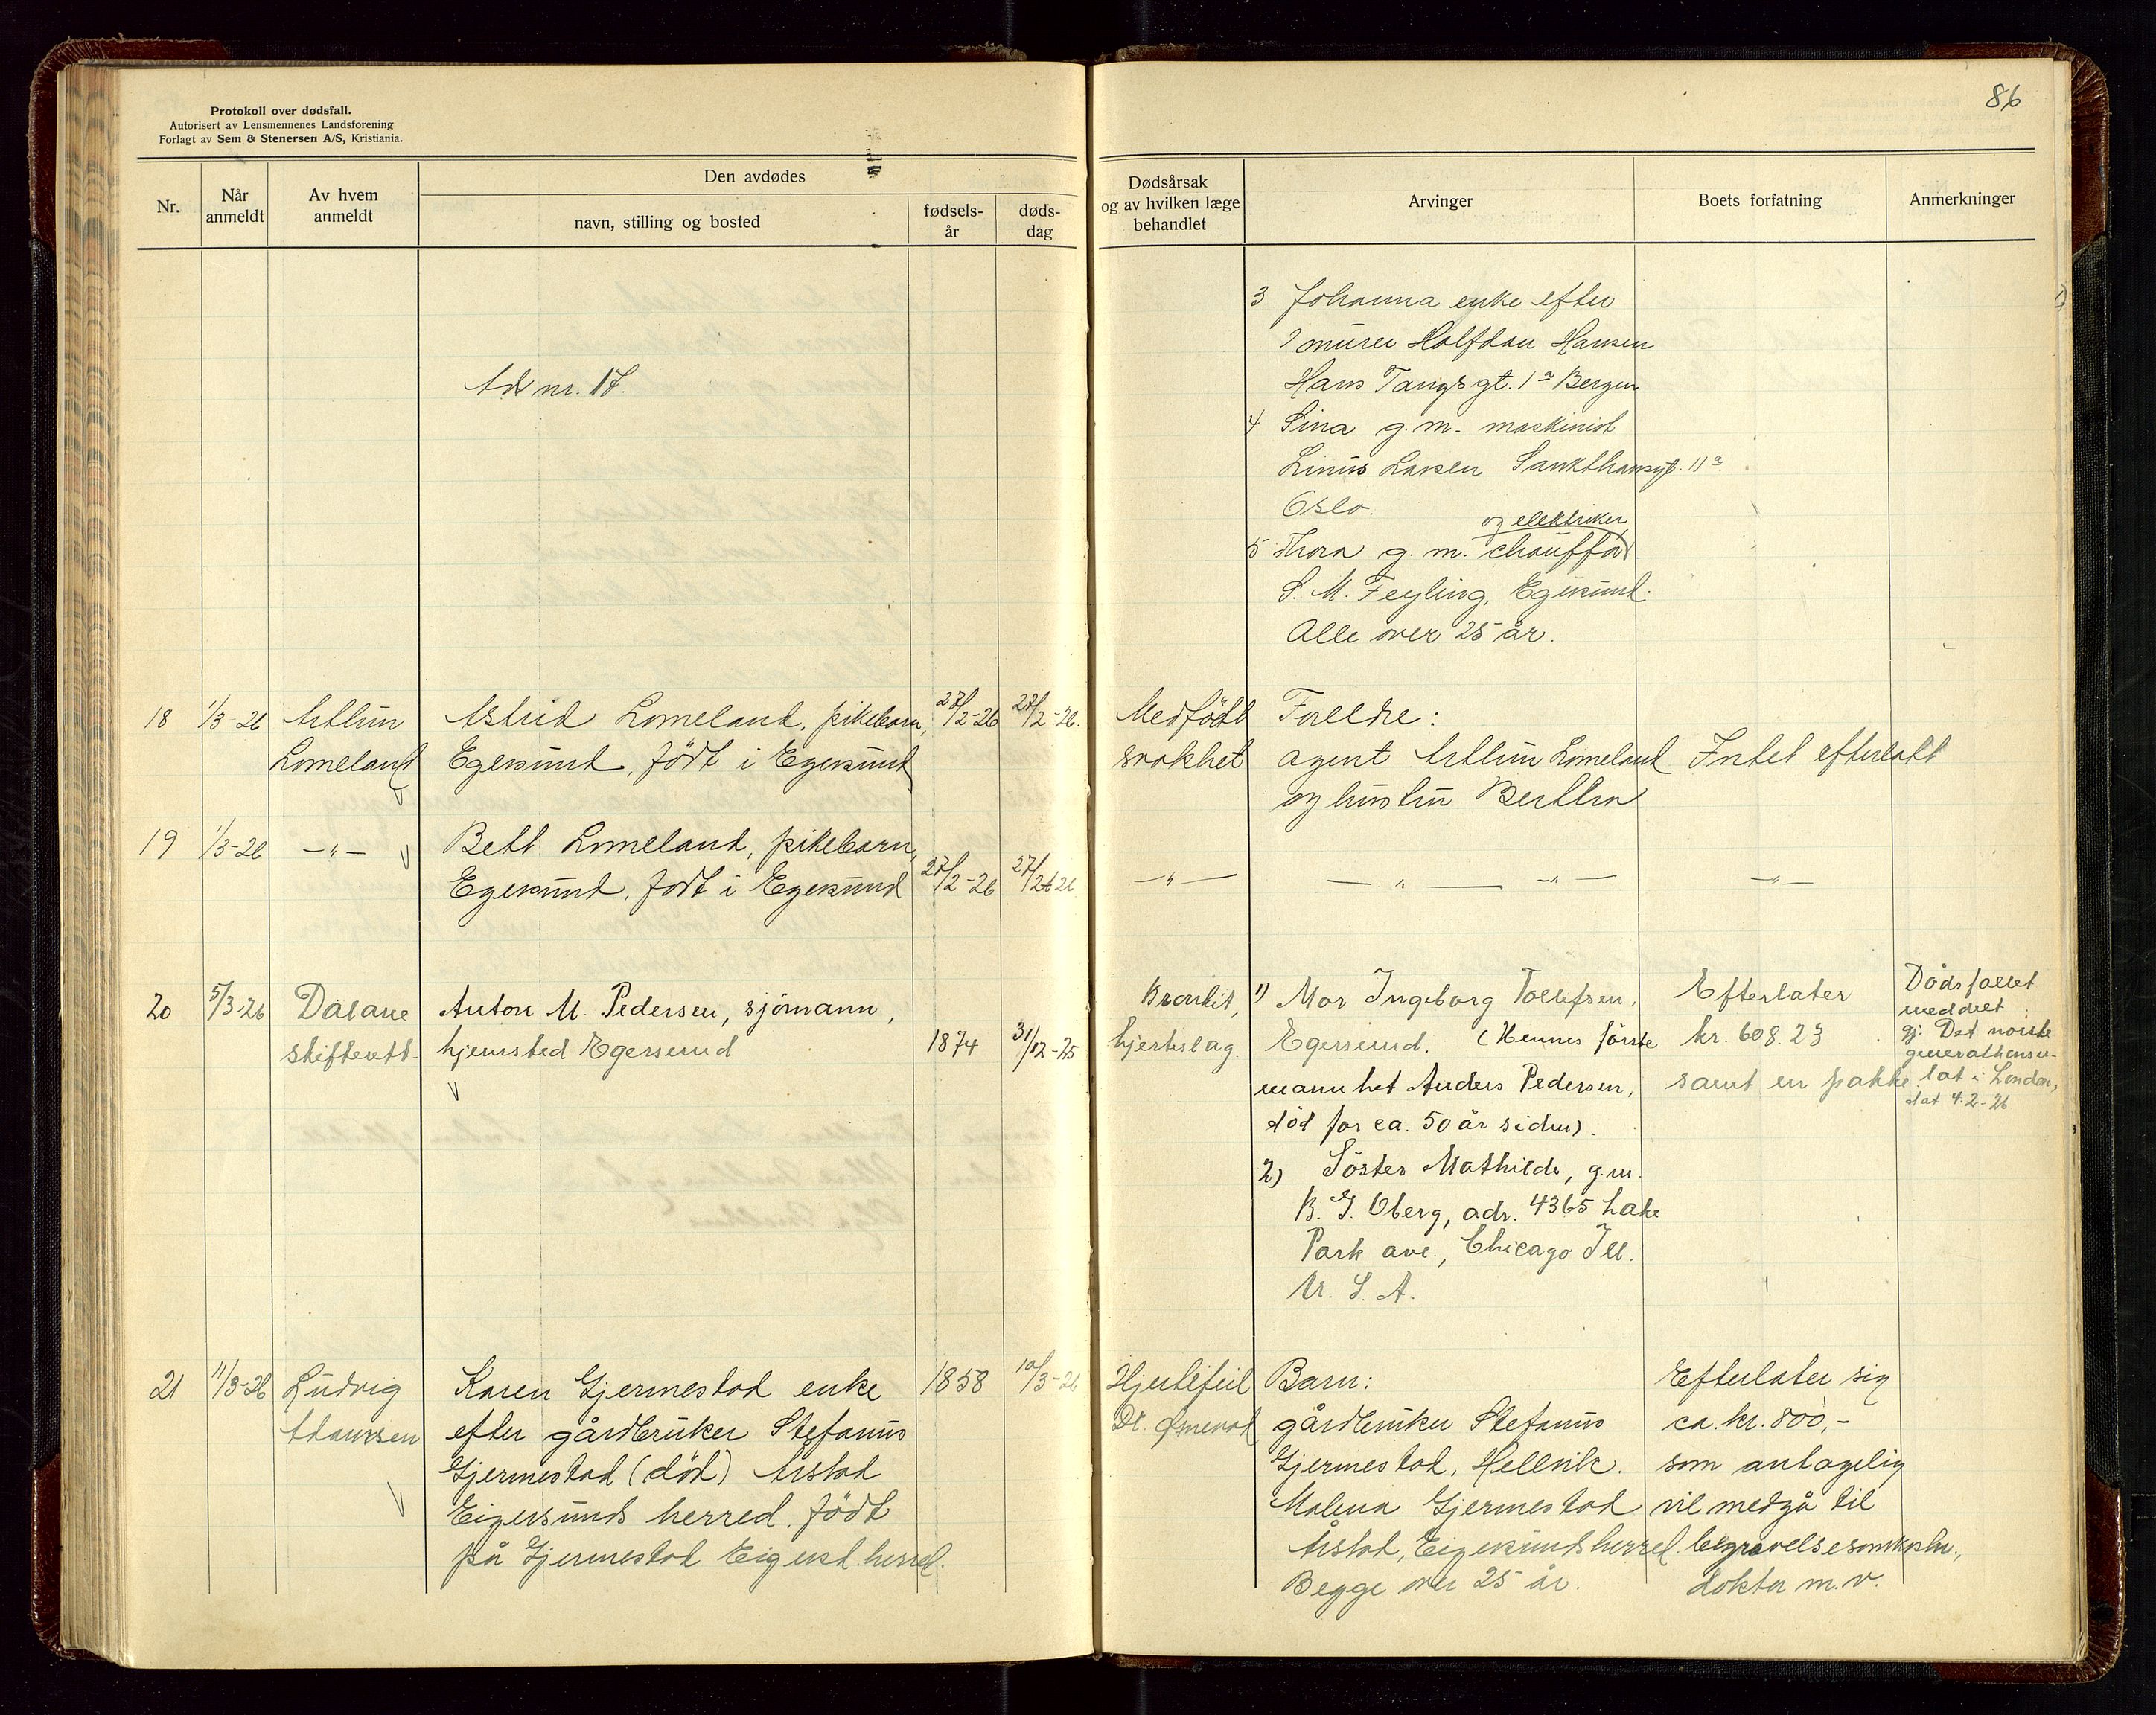 Protokoll over dødsfall.
Autorisert av Lensmennenes Landsforening
Forlagt av Sem & Stenersen A/S, Kristiania.
86
Nr.
Når anmeldt
Av hvem anmeldt
Den avdødes
navn, stilling og bosted
fødsels-år
døds-dag
Dødsårsak
og av hvilken læge
behandlet
Arvinger
Boets forfatning
Anmerkninger
Ad nr. 17.
3 Johanna enke efter
murer Halfdan Hansen
Hans Tangs gt. 1a Bergen
4 Sina g.m. maskinist
Linus Larsen Sankthansgt. 11a
Oslo.
og elektriker
5 Thora g. m. chauffør
S. M. Feyling, Egersund.
Alle over 25 år.
18 1/3-26 Arthur
Lomeland
Astrid Lomeland, pikebarn,
Egersund, födt i Egersund
27/2-26 27/2-26.
Medfödt
svakhet
Foreldre:
agent Arthur Lomeland
og hustru Bertha
Intet efterlatt
19 1/3-26 —"—
Betl. Lomeland, pikebarn,
Egersund, födt i Egersund
27/2-26
—"—
—"— —"—
—"—
20 5/3-26 Dalane
skifterett.
Anton M. Pedersen, sjömann,
hjemsted Egersund
1874 31/12-25
Bronkit,
hjerteslag.
1) Mor Ingeborg Tollefsen,
Egersund. (Hennes förste
mann het Anders Pedersen,
död for ca. 50 år siden).
2) Söster Mathilde, g.m.
B. G. Oberg, adr. 4365 Lake
Park ave., Chicago Ill.
U. S. A.
Efterlater
kr. 608.23
samt en pakke
Dödsfallet
meddelt
gj. Det norske
generalkonsu-
lat i London,
dat 4.2-26
21 11/3-26 Ludvig
Karen Gjermestad enke
efter gårdbruker Stefanus
Gjermestad (död) Årstad
Eigersunds herred. födt
på Gjermestad Eigersd. herred.
1858 10/3-26
Hjertefeil
Dr.
Barn:
gårdbruker Stefanus
Gjermestad, Hellvik.
Malena Gjermestad
Årstad, Eigersunds herred.
Begge over 25 år.
Efterlater sig
ca. kr. 800,-
som antagelig
vil medgå til
begravelsesomkostn.,
doktor m.v.